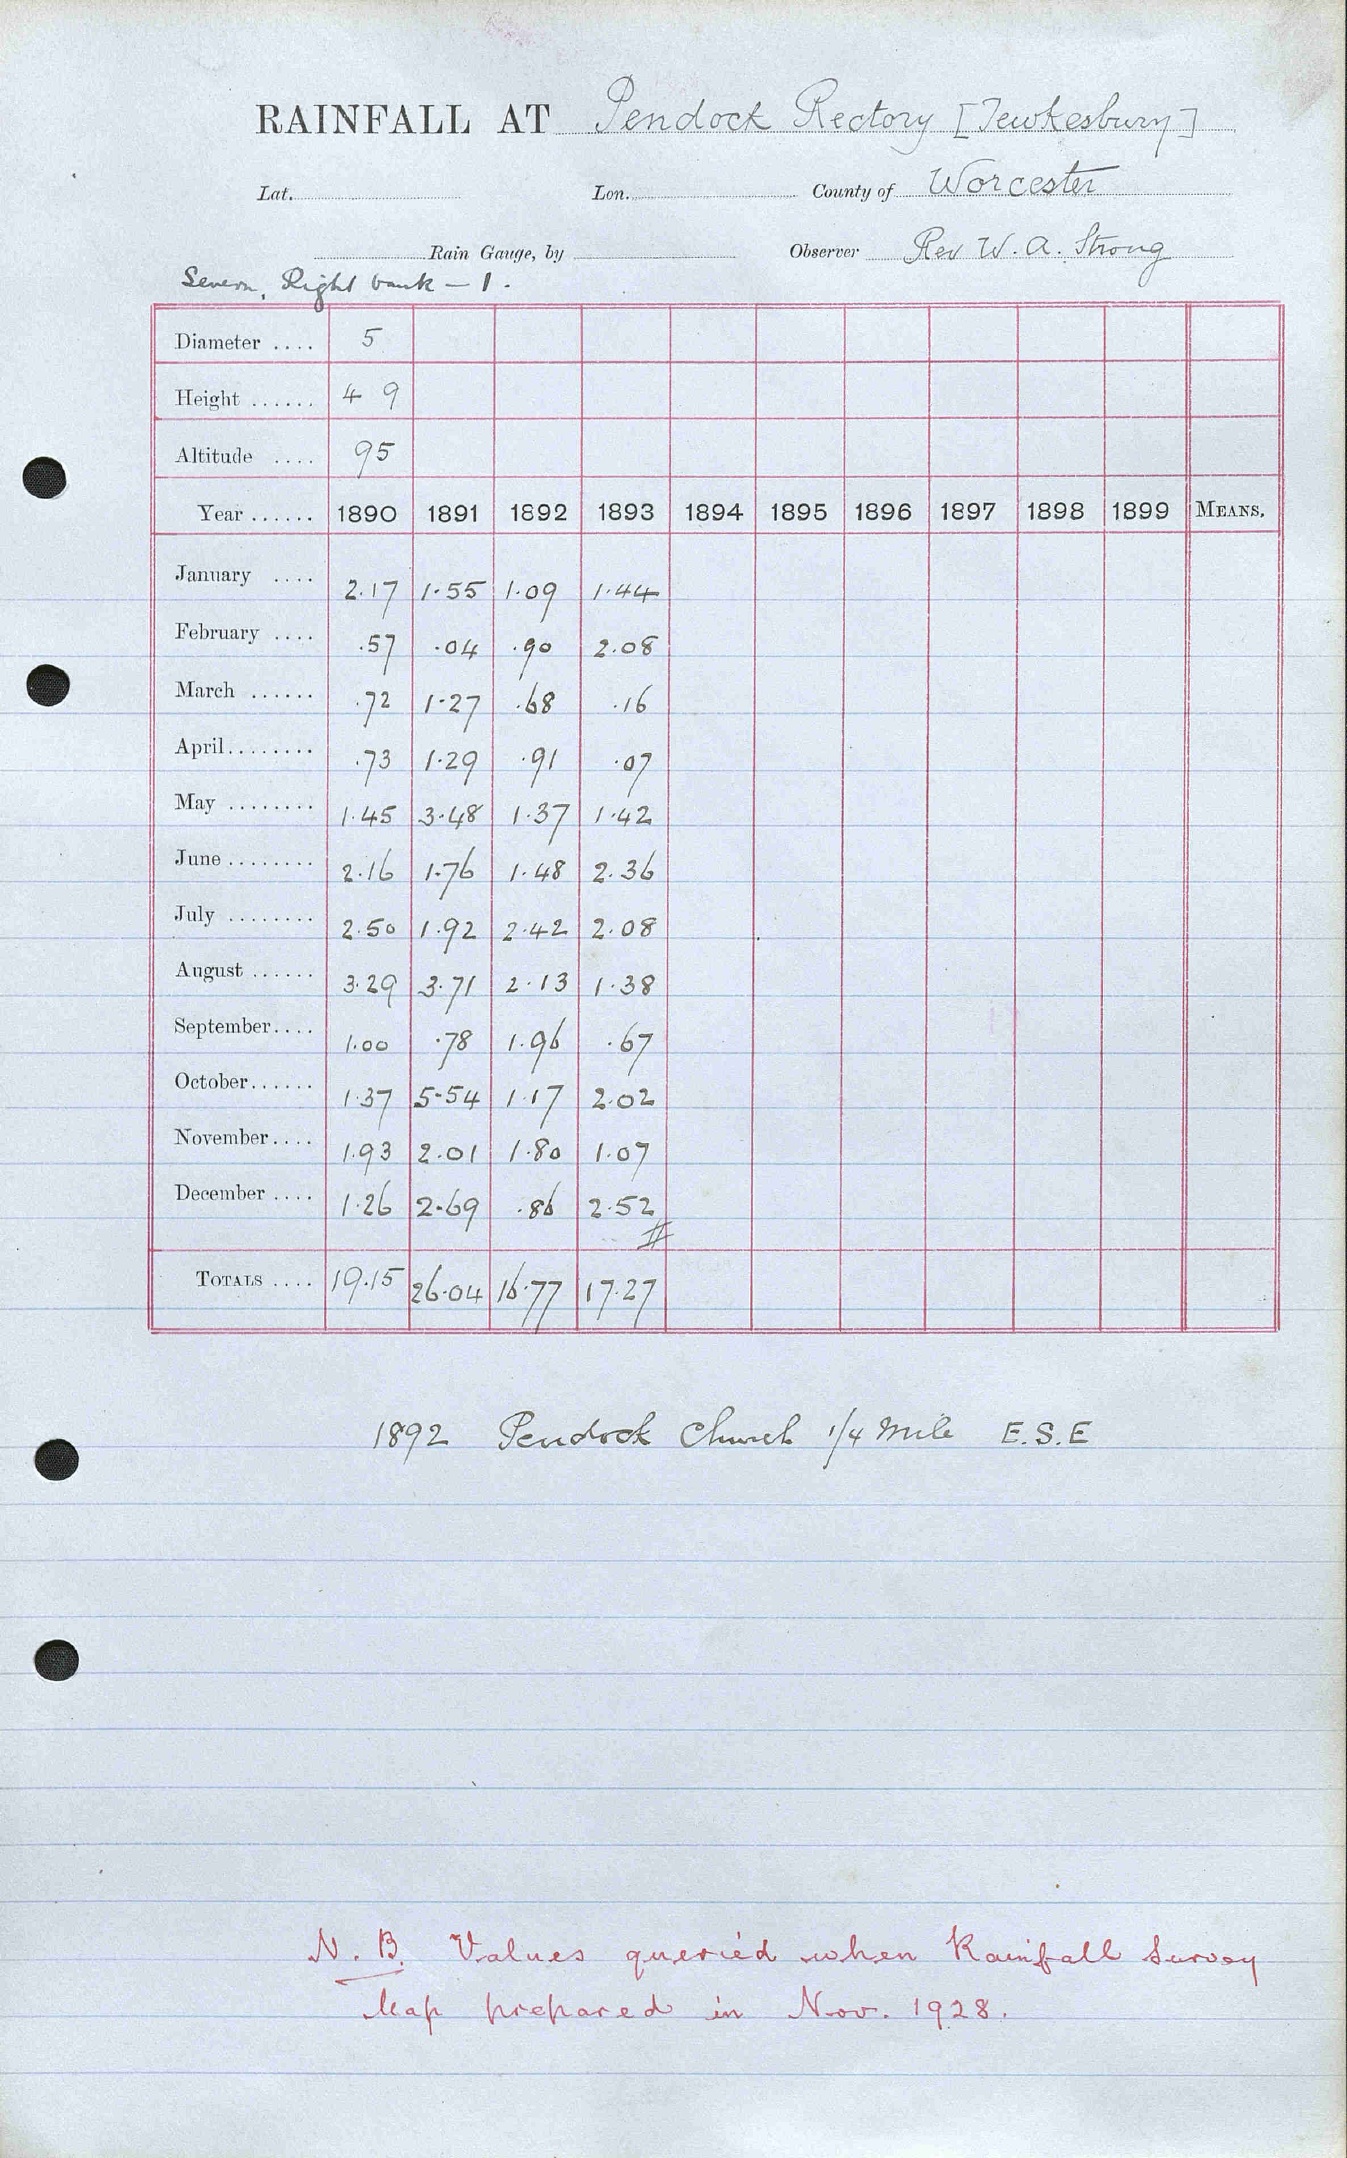 RAINFALL AT Pendock Rectory [Tewkesbury]
Lat. Lon. County of Worcester
Rain Gauge, by Observer Rev W. A. Strong
Severn, Right bank - 1.
Diameter .... 5
Height ...... 4 9
Altitude .... 95
Year ...... 1890 1891 1892 1893 1894 1895 1896 1897 1898 1899 MEANS.
January .... 2.17 1.55 1.09 1.44
February .... .57 .04 .90 2.08
March ...... .72 1.27 .68 .16
April........ .73 1.29 .91 .07
May ........ 1.45 3.48 1.37 1.42
June ........ 2.16 1.76 1.48 2.36
July ........ 2.50 1.92 2.42 2.08
August ...... 3.29 3.71 2.13 1.38
September.... 1.00 .78 1.96 .67
October...... 1.37 5.54 1.17 2.02
November.... 1.93 2.01 1.80 1.07
December .... 1.26 2.69 .86 2.52
//
TOTALS .... 19.15 26.04 16.77 17.27
1892 Pendock Church 1/4 mile E.S.E
N.B. Values queried when Rainfall Survey
Map prepared in Nov. 1928.